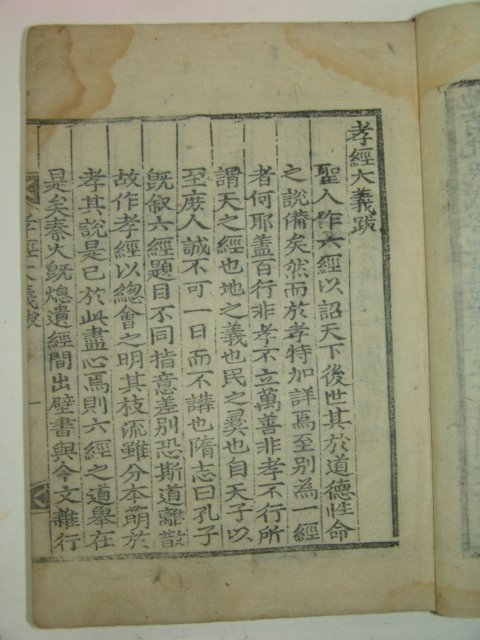 孝經大義跋
聖人作六經以詔天下後世其於道德性命
之說備矣然而於孝特加詳焉至別為一經
者何耶蓋百行非孝不立萬善非孝不行所
謂天之經也地之義也民之彛也自天子以
至庶人誠不可一日而不講也隋志曰孔子
旣叙六經題目不同指意差別恐斯道離散
故作孝經以總會之明其枝流雖分本萌於
孝其說是已於此盡心焉則六經之道擧在
是矣秦火旣熄遺經間出壁書與今文雜行
孝經大義跋